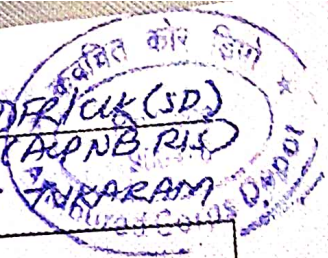 कवचित कोर डिपो ★
DFR/CLK (SD)
(ACP NB RIS)
TUKARAM
Armoured Corps Depot